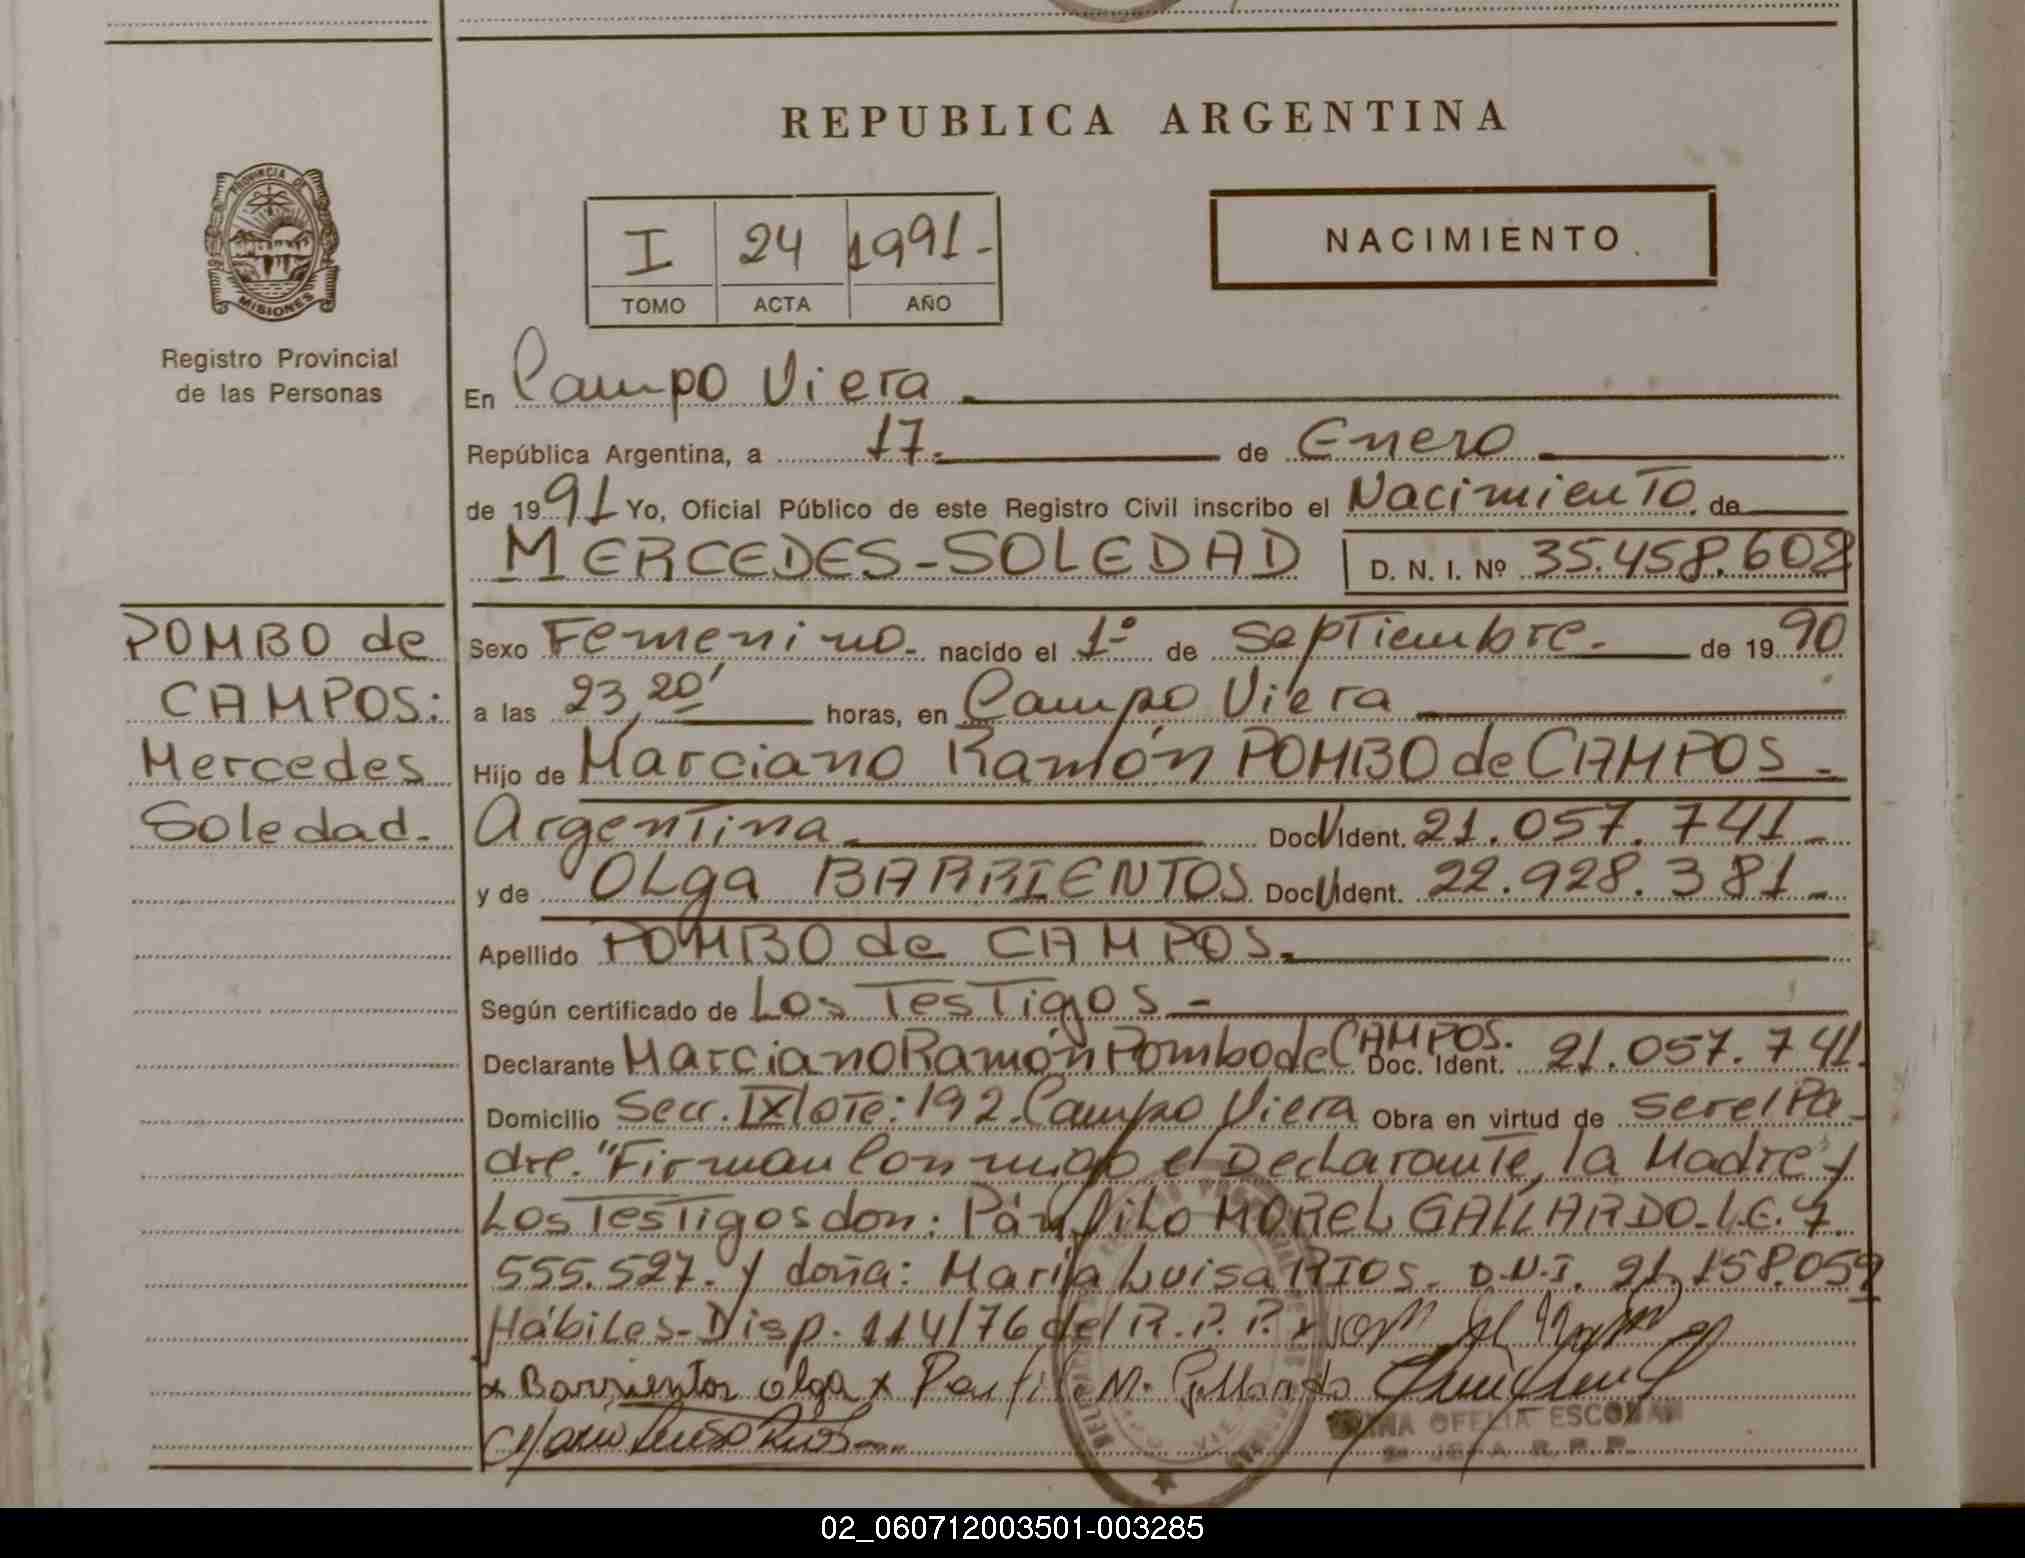 REPUBLICA ARGENTINA
PROVINCIA DE
MISIONES
Registro Provincial
de las Personas
I 24 1991-
TOMO ACTA AÑO
NACIMIENTO
En Campo Viera
República Argentina, a 17. de Enero
de 1991 Yo, Oficial Público de este Registro Civil inscribo el Nacimiento de
MERCEDES-SOLEDAD D. N. I. Nº 35.458.602
POMBO de
CAMPOS:
Mercedes
Soledad.
Sexo Femenino. nacido el 1º de septiembre. de 1990
a las 23,20' horas, en Campo Viera
Hijo de Marciano Ramón POMBO de CAMPOS -
Argentina Doc. Ident. 21.057.741-
y de OLga BARRIENTOS Doc. Ident. 22.928.381-
Apellido POMBO de CAMPOS.
Según certificado de Los Testigos -
Declarante Marciano Ramón Pombo de CAMPOS. Doc. Ident. 21.057.741.
Domicilio Secc. IX lote: 192. Campo Viera Obra en virtud de ser el Pa-
dre. "Firman conmigo el Declarante, la Madre y
Los Testigos don: Pánfilo MOREL GALLARDO-L.C. 7.
555.527. y doña: María Luisa RIOS. D.N.I. 21.158.059
Hábiles-Disp. 114/76 del R.P.P. x
x Barrientos olga x Panfilo M. Gallardo
Maria Luisa Rios
OFELIA ESCOBAR
R.P.P.
02_060712003501-003285